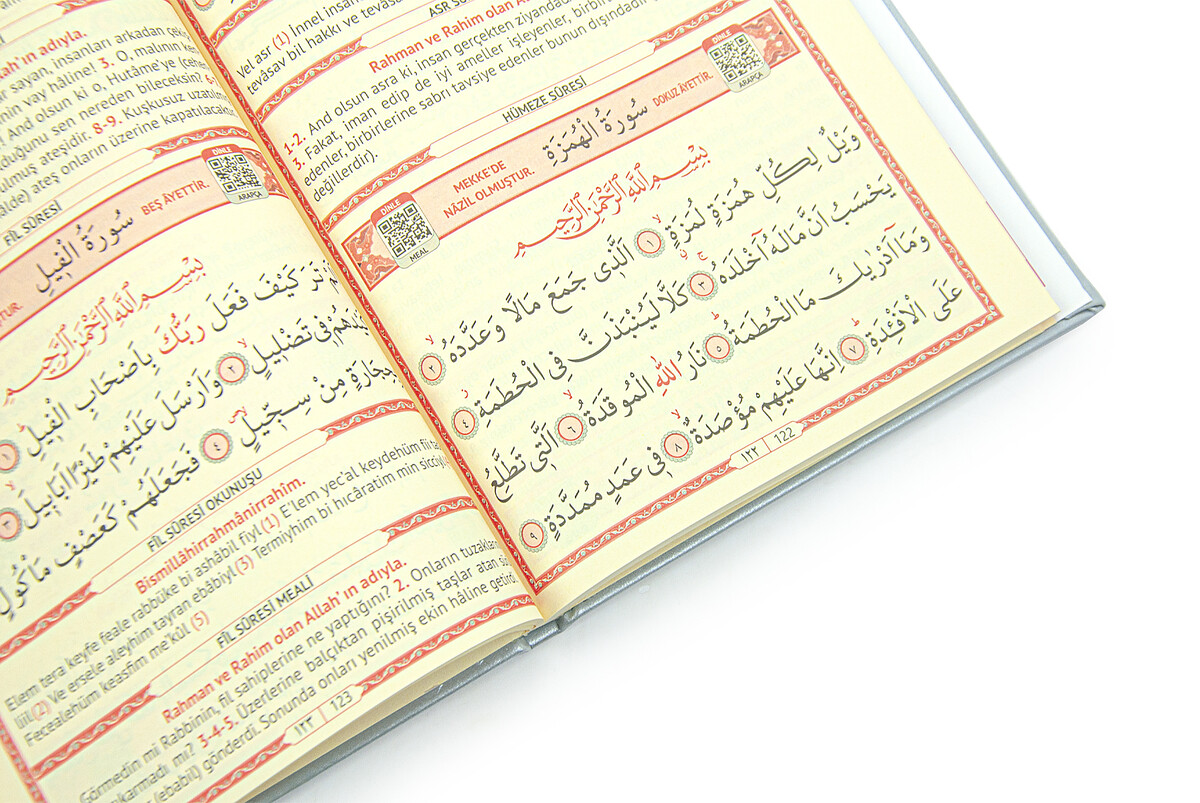 ASR SÛ
Vel asr (1) İnnel insa
tevâsav bil hakkı ve tevâsa
Rahman ve Rahim olan A
1-2. And olsun asra ki, insan gerçekten ziyandadı
3. Fakat, iman edip de iyi ameller işleyenler, birbirin
edenler, birbirlerine sabrı tavsiye edenler bunun dışındadır
değillerdir).
HÜMEZE SÛRESİ
DİNLE
MEAL
MEKKE'DE
NÂZİL OLMUŞTUR.
سُورَةُ الْهُمَزَةِ
DOKUZ ÂYETTİR.
DİNLE
ARAPÇA
بِسْمِ اللّٰهِ الرَّحْمٰنِ الرَّحِيمِ
وَيْلٌ لِكُلِّ هُمَزَةٍ لُمَزَةٍ ١ اَلَّذٖى جَمَعَ مَالًا وَعَدَّدَهُ ٢
يَحْسَبُ اَنَّ مَالَهُٓ اَخْلَدَهُ ٣ كَلَّا لَيُنْبَذَنَّ فِى الْحُطَمَةِ ٤
وَمَٓا اَدْرٰيكَ مَا الْحُطَمَةُ ٥ نَارُ اللّٰهِ الْمُوقَدَةُ ٦ اَلَّتٖى تَطَّلِعُ
عَلَى الْاَفْـِٔدَةِ ٧ اِنَّهَا عَلَيْهِمْ مُؤْصَدَةٌ ٨ فٖى عَمَدٍ مُمَدَّدَةٍ ٩
١٢٢ | 122
lah'ın adıyla.
sayan, insanları arkadan çek
nin vay hâline! 3. O, malının ken
And olsun ki o, Hutâme'ye (cehe
duğunu sen nereden bileceksin? 6-
ulmuş ateşidir. 8-9. Kuşkusuz uzatılm
âlde) ateş onların üzerine kapatılacak
FİL SÛRESİ
TUR.
سُورَةُ الْفٖيلِ
BEŞ ÂYETTİR.
DİNLE
ARAPÇA
بِسْمِ اللّٰهِ الرَّحْمٰنِ الرَّحِيمِ
تَرَ كَيْفَ فَعَلَ رَبُّكَ بِاَصْحَابِ الْفٖيلِ ١
فٖى تَضْلٖيلٍ ٢ وَاَرْسَلَ عَلَيْهِمْ طَيْرًا اَبَابٖيلَ ٣
بِحِجَارَةٍ مِنْ سِجّٖيلٍ ٤ فَجَعَلَهُمْ كَعَصْفٍ مَاْكُولٍ
FİL SÛRESİ OKUNUŞU
Bismillâhirrahmânirrahim.
Elem tera keyfe feale rabbüke bi ashâbil fiyl (1) E'lem yec'al keydehüm fii ta
liil (2) Ve ersele aleyhim tayran ebâbiyl (3) Termiyhim bi hıcâratim min sicciyl
Fecealehüm keasfim me'kûl (5)
FİL SÛRESİ MEALİ
Rahman ve Rahim olan Allah'ın adıyla.
Görmedin mi Rabbinin, fil sahiplerine ne yaptığını? 2. Onların tuzaklar
çıkarmadı mı? 3-4-5. Üzerlerine balçıktan pişirilmiş taşlar atan sü
(ebabil) gönderdi. Sonunda onları yenilmiş ekin hâline getird
١٢٣ | 123